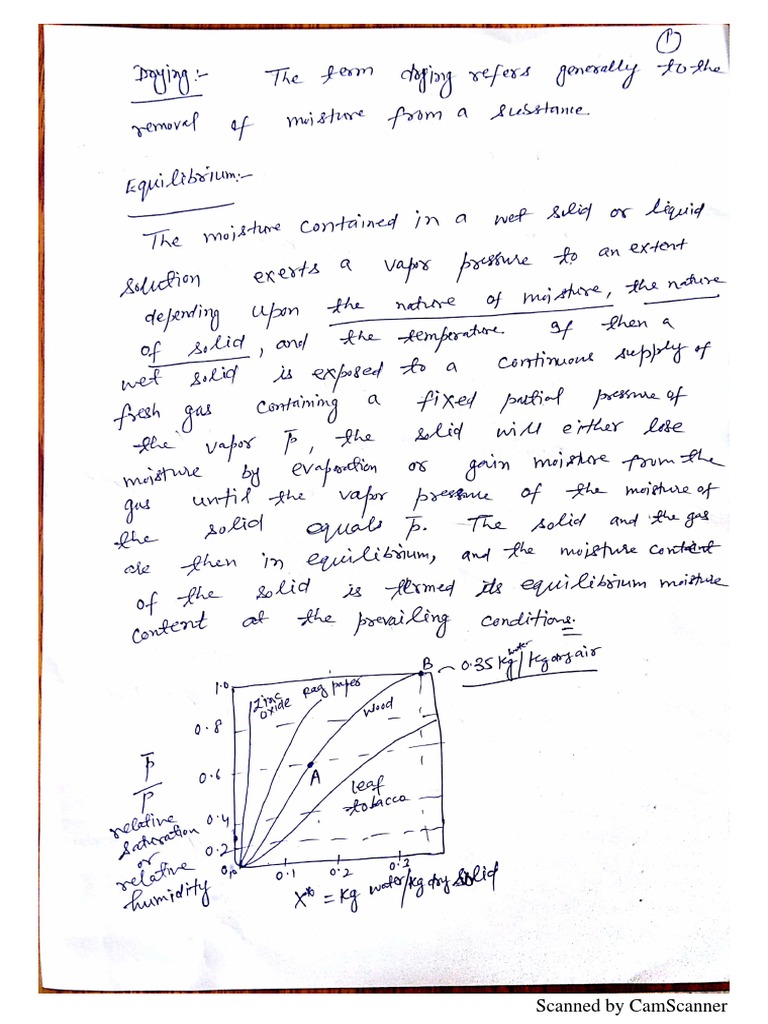 1
Drying:- The term drying refers generally to the
removal of moisture from a substance.
Equilibrium:-
The moisture contained in a wet solid or liquid
solution exerts a vapor pressure to an extent
depending upon the nature of moisture, the nature
of solid, and the temperature. If then a
wet solid is exposed to a continuous supply of
fresh gas containing a fixed partial pressure of
the vapor p̅, the solid will either lose
moisture by evaporation or gain moisture from the
gas until the vapor pressure of the moisture of
the solid equals p̅. The solid and the gas
are then in equilibrium, and the moisture content
of the solid is termed its equilibrium moisture
content at the prevailing conditions.
B
0.35 kg water/kg dry air
1.0
Zinc oxide
Rag paper
wood
0.8
p̅/P
0.6
A
leaf
tobacco
relative
saturation
or
relative
humidity
0.4
0.2
0.0
0.1
0.2
0.3
X* = kg water/kg dry solid
Scanned by CamScanner